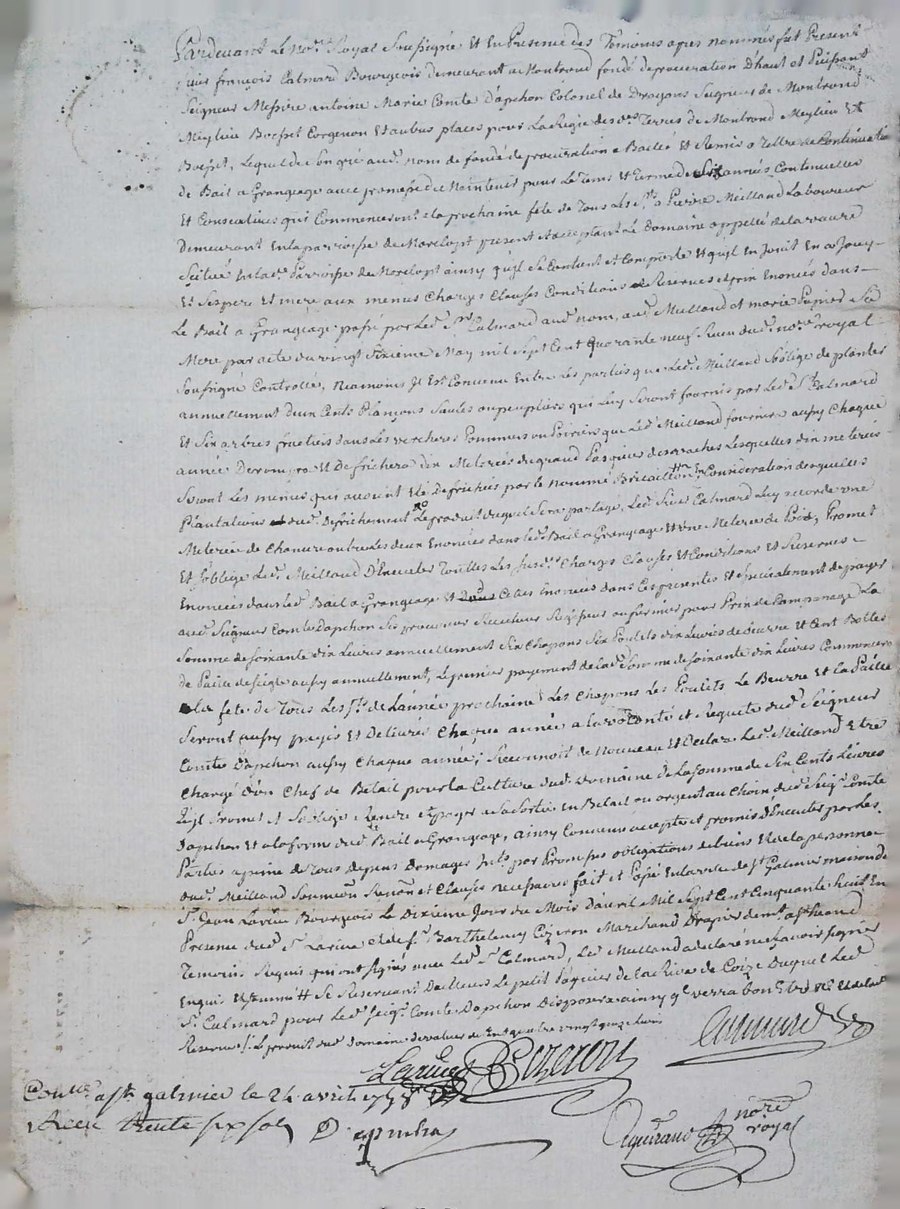 Pardevant Le No.re Royal Soussigné Et En Presence des Temoins apres nommés fut Present
françois Calmard Bourgeois demeurant a Montrond fondé de procuration D'haut et Puissant
Seigneur Messire antoine Marie Comte D'apchon Colonel de Dragons Seigneur de Montrond
Meylieu Boisset Corgenon Et autres places pour La Regie des Terres de Montrond Meylieu Et
Boisset, Lequel de Son gré aud. nom de fondé de procuration a Baillé Et Remis a Tiltre de Continuation
de Bail a Grangeage avec promesse de Maintenir pour Le Tems et Terme de Six années Continuelles
Et Consecutives qui Commenceront a la prochaine fête de Tous Les S.ts a Pierre Meilland Laboureur
Demeurant En La parroisse de Marclopt present Et acceptant Le Domaine appellé de la vaure
Scitué En lad. Parroisse de Marclopt ainsy qu'il Se Contient et Comporte Et qu'il En Jouit En a Jouy
Et Ses pere Et mere aux memes Charges Clauses Conditions Reserves et prix Enoncés dans
Le Bail a Grangeage passé par Led. S.r Calmard aud. nom, aud. Meilland et marie Papier Sa
Mere par acte du vingt Sixieme May mil Sept Cent quarante neuf Receu dud. no.re royal
Soussigné Controllé, Neamoins Il Est Convenu Entre Les parties que Led. Meilland S'oblige de planter
annuellement deux Cents Plançons Saules ou peupliers qui Luy Seront fournis par Led. S.r Calmard
Et Six arbres fruitiers dans Les vercheres Pommiers ou Poiriers que Led. Meilland fournira aussy Chaque
année Derompra Et Defrichera dix Meterées du grand Pasquier des vaches Lesquelles dix meterées
Seront Les memes qui avoient Eté Defrichées par le nommé En Consideration desquelles
Plantations Et dud. Defrichement Le produit duquel Sera partagé, Led. Sieur Calmard Luy accorde une
Meterée de Chanvre Enoncées dans led. Bail a Grangeage Et une Meterée de Pois, Promet
Et S'oblige Led. Meilland D'Executer Touttes Les Charges Clauses Et Conditions Et Reserves
Enoncées dans led. Bail a Grangeage Et Celles Enoncées dans Ces presentes Et Specialement de payer
aud. Seigneur Comte Dapchon Ses procureurs Receveurs Regisseurs ou fermiers pour Prix de Lamponage La
Somme de Soixante dix Livres annuellement Six Chapons Six Poulets dix Livres de Beurre Et Cent Bottes
de Paille de Seigle aussy annuellement, Le premier payement de lad. Somme de Soixante dix Livres Commencera
a la fête de Tous Les S.ts de L'année prochaine Les Chapons Les Poulets Le Beurre et la Paille
Seront aussy payés Et Delivrés Chaque année a la volonté et Requete dud. Seigneur
Comte D'apchon aussy Chaque année; Reconnoit de Nouveau Et Declare Led. Meilland Etre
Chargé D'un Chef de Betail pour la Culture dud. Domaine de La Somme de Six Cents Livres
qu'il Promet Et S'oblige Rendre Et payer a sa Sortie En Betail ou argent au Choix dud. Seig.r Comte
Dapchon Et a la forme dud. Bail a Grangeage, ainsy Convenu accepté et promis d'Executer par Les
Parties a peine de Tous depens Domages Int.ts par Promesses obligations de biens Et de la personne
dud. Meilland Soumission Renon.on et Clauses necessaires fait et Passé En la ville de S.t Galmier maison de
S.r Jean Larive Bourgeois Le Dixieme Jour du Mois d'avril Mil Sept Cent Cinquante huit En
Presence dud. S.r Larive Et de S.r Barthelemy Cizeron Marchand Drapier
Temoins Requis qui ont Signé avec Led. S.r Calmard, Led. Meilland a declaré ne Sçavoir Signer
Enquis Et Sommé Se Reservant D'ailleurs Le petit Pasquier de la Rive de Coize Duquel Led.
S.r Calmard pour Led. Seig.r Comte Dapchon Disposera ainsy q.l verra bon
Reserve Le produit dud. Domaine de valeur de Cent quatre vingt quinze Livres
Larive Cizeron Calmard
Con.lé a St. galmier le 24 avril 1758
Receu trente six sols
no.re
royal